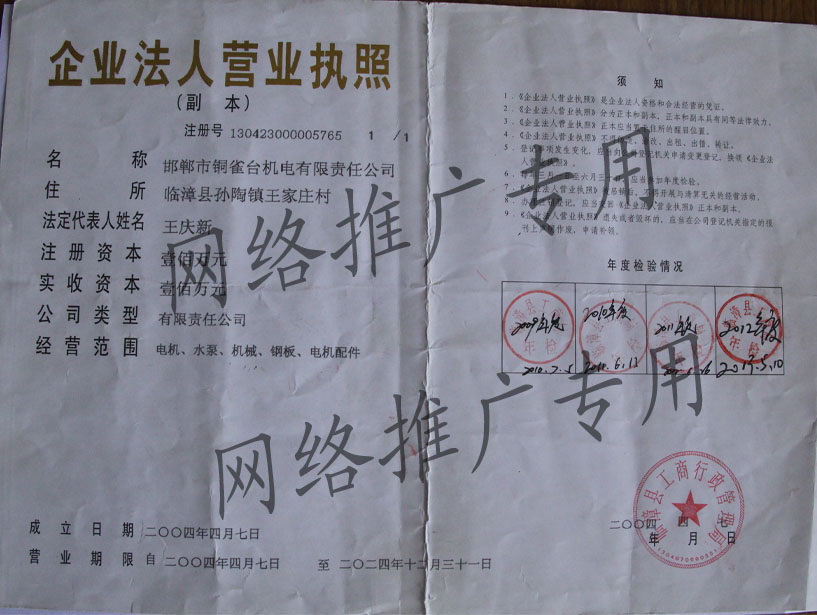 企业法人营业执照
（副 本）
注册号 130423000005765 1 / 1
名 称 邯郸市铜雀台机电有限责任公司
住 所 临漳县孙陶镇王家庄村
法定代表人姓名 王庆新
注 册 资 本 壹佰万元
实 收 资 本 壹佰万元
公 司 类 型 有限责任公司
经 营 范 围 电机、水泵、机械、钢板、电机配件
成 立 日 期 二〇〇四年四月七日
营 业 期 限 自 二〇〇四年四月七日 至 二〇二四年十二月三十一日
须 知
1．《企业法人营业执照》是企业法人资格和合法经营的凭证。
2．《企业法人营业执照》分为正本和副本，正本和副本具有同等法律效力。
3．《企业法人营业执照》正本应当置于住所的醒目位置。
4．《企业法人营业执照》不得伪造、涂改、出租、出借、转让。
5．登记事项发变化，应当向登记机关申请变更登记，换领《企业法
人营业执照》。
6．每年三月一日至六月三十日，应当参加年度检验。
7．《企业法人营业执照》不得开展与清算无关的经营活动。
8．办理注销登记，应当交回《企业法人营业执照》正本和副本。
9．《企业法人营业执照》遗失或者毁坏的，应当在公司登记机关指定的报
刊上声明作废，申请补领。
年 度 检 验 情 况
2009年度 2010年度 2011年度 2012年度
年检
2010.7.5 6.12 16 5.10
二〇〇四 四 七
年 月 日
临漳县工商行政管理局
网络推广专用
网络推广专用